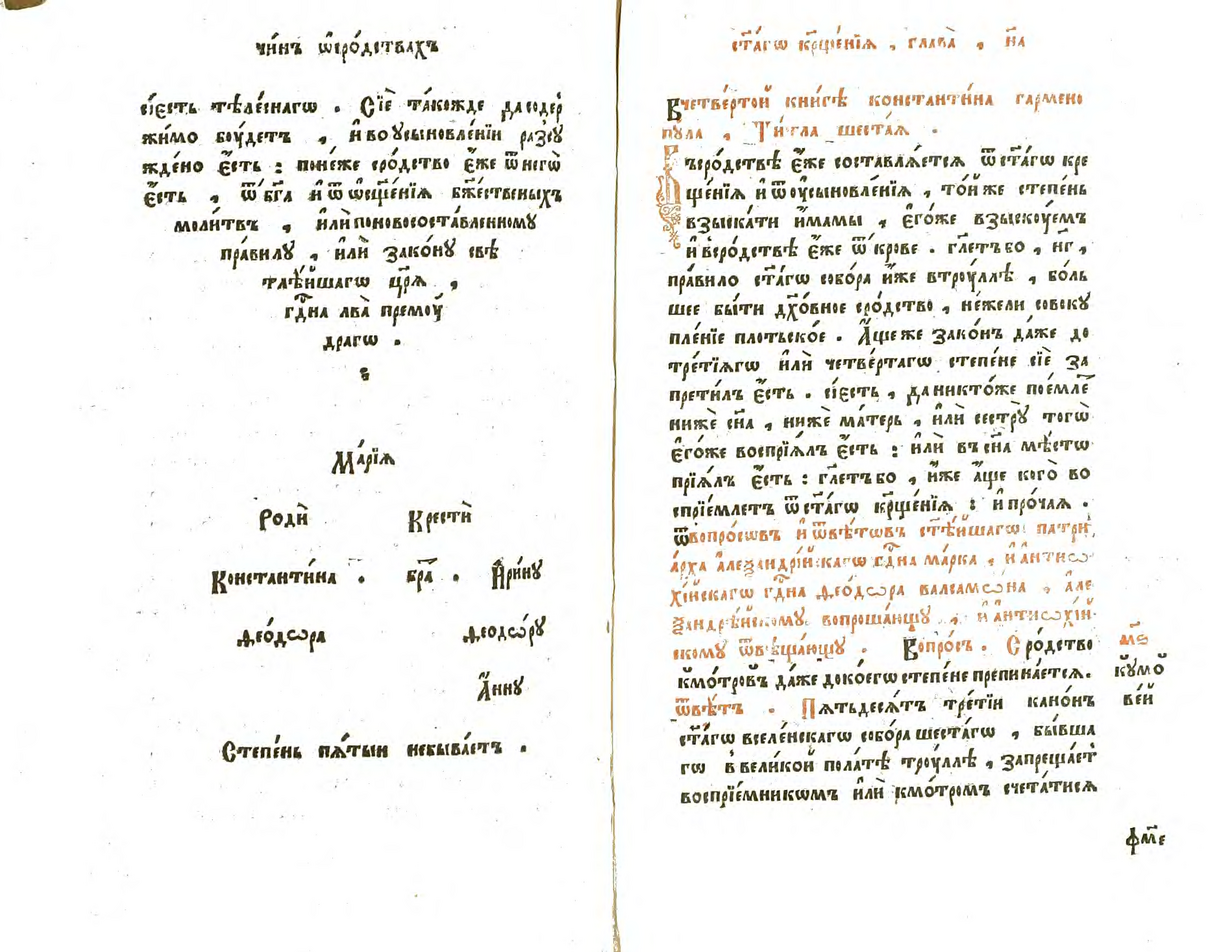 чи́нъ ѡ҆сро́дствахъ
сі́есть тѣле́снагѡ . Сїѐ та́кожде да содер
жи́мо бꙋ́детъ , и҆ во ᲂу҆сыновле́нїи разсꙋ
жде́но є҆́сть : поне́же сро́дство є҆́же ѿ негѡ̀
є҆́сть , ѿ бг҃а и҆ ѿ ѡ҆сщ҃е́нїѧ бж҃е́ственыхъ
моли́твъ , и҆лѝ по новососта́вленному
пра́вилꙋ , и҆лѝ зако́нꙋ свѣ
тлѣ́йшагѡ цр҃ѧ̀ ,
гд҃на льва̀ премꙋ́
драгѡ .
Марі́ѧ
Родѝ Крестѝ
Константи́на . бра̀ . И҆ри́нꙋ
Ѳео́дѡра Ѳеодѡ́рꙋ
А҆́ннꙋ
Степе́нь пѧ́тыи небыва́етъ .
ст҃а́гѡ кр҃ще́нїѧ , глава̀ , н҃а
Вчетве́ртой кни́гѣ константи́на гармено
пꙋ́ла , Ти́тла шеста́ѧ .
Въсро́дствѣ є҆́же составлѧ́етсѧ ѿ ст҃а́гѡ кре
ще́нїѧ и҆ ѿ ᲂу҆сыновле́нїѧ , то́й же степе́нь
взыска́ти и҆́мамы , є҆го́же взыскꙋ́емъ
и҆ всро́дствѣ є҆́же ѿ кро́ве . гл҃етъ бо , нг҃ ,
пра́вило ст҃а́гѡ собо́ра и҆́же втрꙋ́ллѣ , бо́ль
шее бы́ти дх҃о́вное сро́дство , не́жели совокꙋ
пле́нїе пло́тьское . А҆́ще же зако́нъ да́же до
тре́тїѧгѡ и҆лѝ четве́ртагѡ степе́не сїѐ за
прети́лъ є҆́сть . сі́есть , да никто́же пое́млетъ
нижѐ сн҃а , нижѐ ма́терь , и҆лѝ сестрꙋ̀ тогѡ̀
є҆го́же воспрїѧ́лъ є҆́сть : и҆лѝ въ сн҃а мѣ́стѡ
прїѧ́лъ є҆́сть : гл҃етъ бо , и҆́же а҆́ще кого̀ во
спрїе́млетъ ѿ ст҃а́гѡ кр҃ще́нїѧ : и҆ про́чаѧ .
ѿвопро́сѡвъ и҆ ѿвѣ́тѡвъ ст҃ѣ́йшагѡ патри
а́рха а҆леѯандрі́йскагѡ гд҃на ма́рка , и҆ а҆нтиѡ
хі́йскагѡ гд҃на ѳео́дѡра валсамѡ́на , а҆ле
ѯандрі́йскомꙋ вопроша́ющꙋ , и҆ а҆нтиѡхі́й
скомꙋ ѿвѣща́ющꙋ . Вопро́съ . Сро́дство
кꙋмо́
кꙋмо́тровъ да́же докое́гѡ степе́не препина́етсѧ.
ве́й
ѿвѣ́тъ . Пѧтьдесѧ́тъ тре́тїи кано́нъ
ст҃а́гѡ вселе́нскагѡ собо́ра шеста́гѡ , бы́вша
гѡ в вели́кой пола́тѣ трꙋ́ллѣ , запреща́етъ
воспрїе́мникѡмъ и҆лѝ кꙋмо́тромъ счета́тисѧ
ф҃м҃е